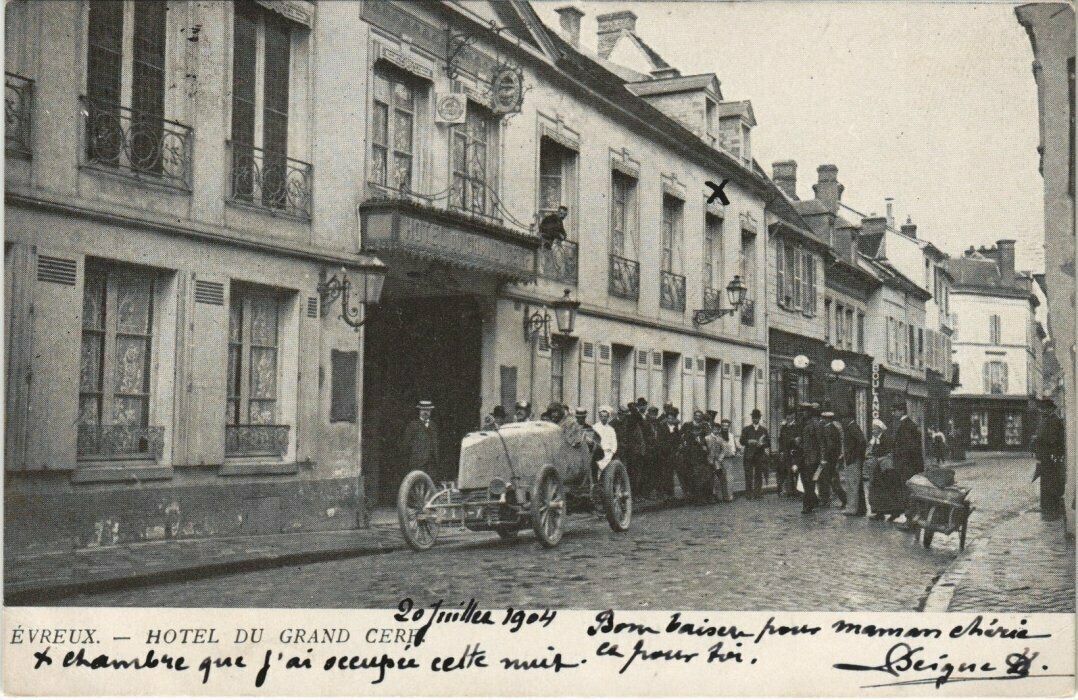 HOTEL DU
BOULANG
ÉVREUX. — HOTEL DU GRAND CERF
20 Juillet 1904
x chambre que j'ai occupée cette nuit.
Bon baiser pour maman chérie
et pour toi.